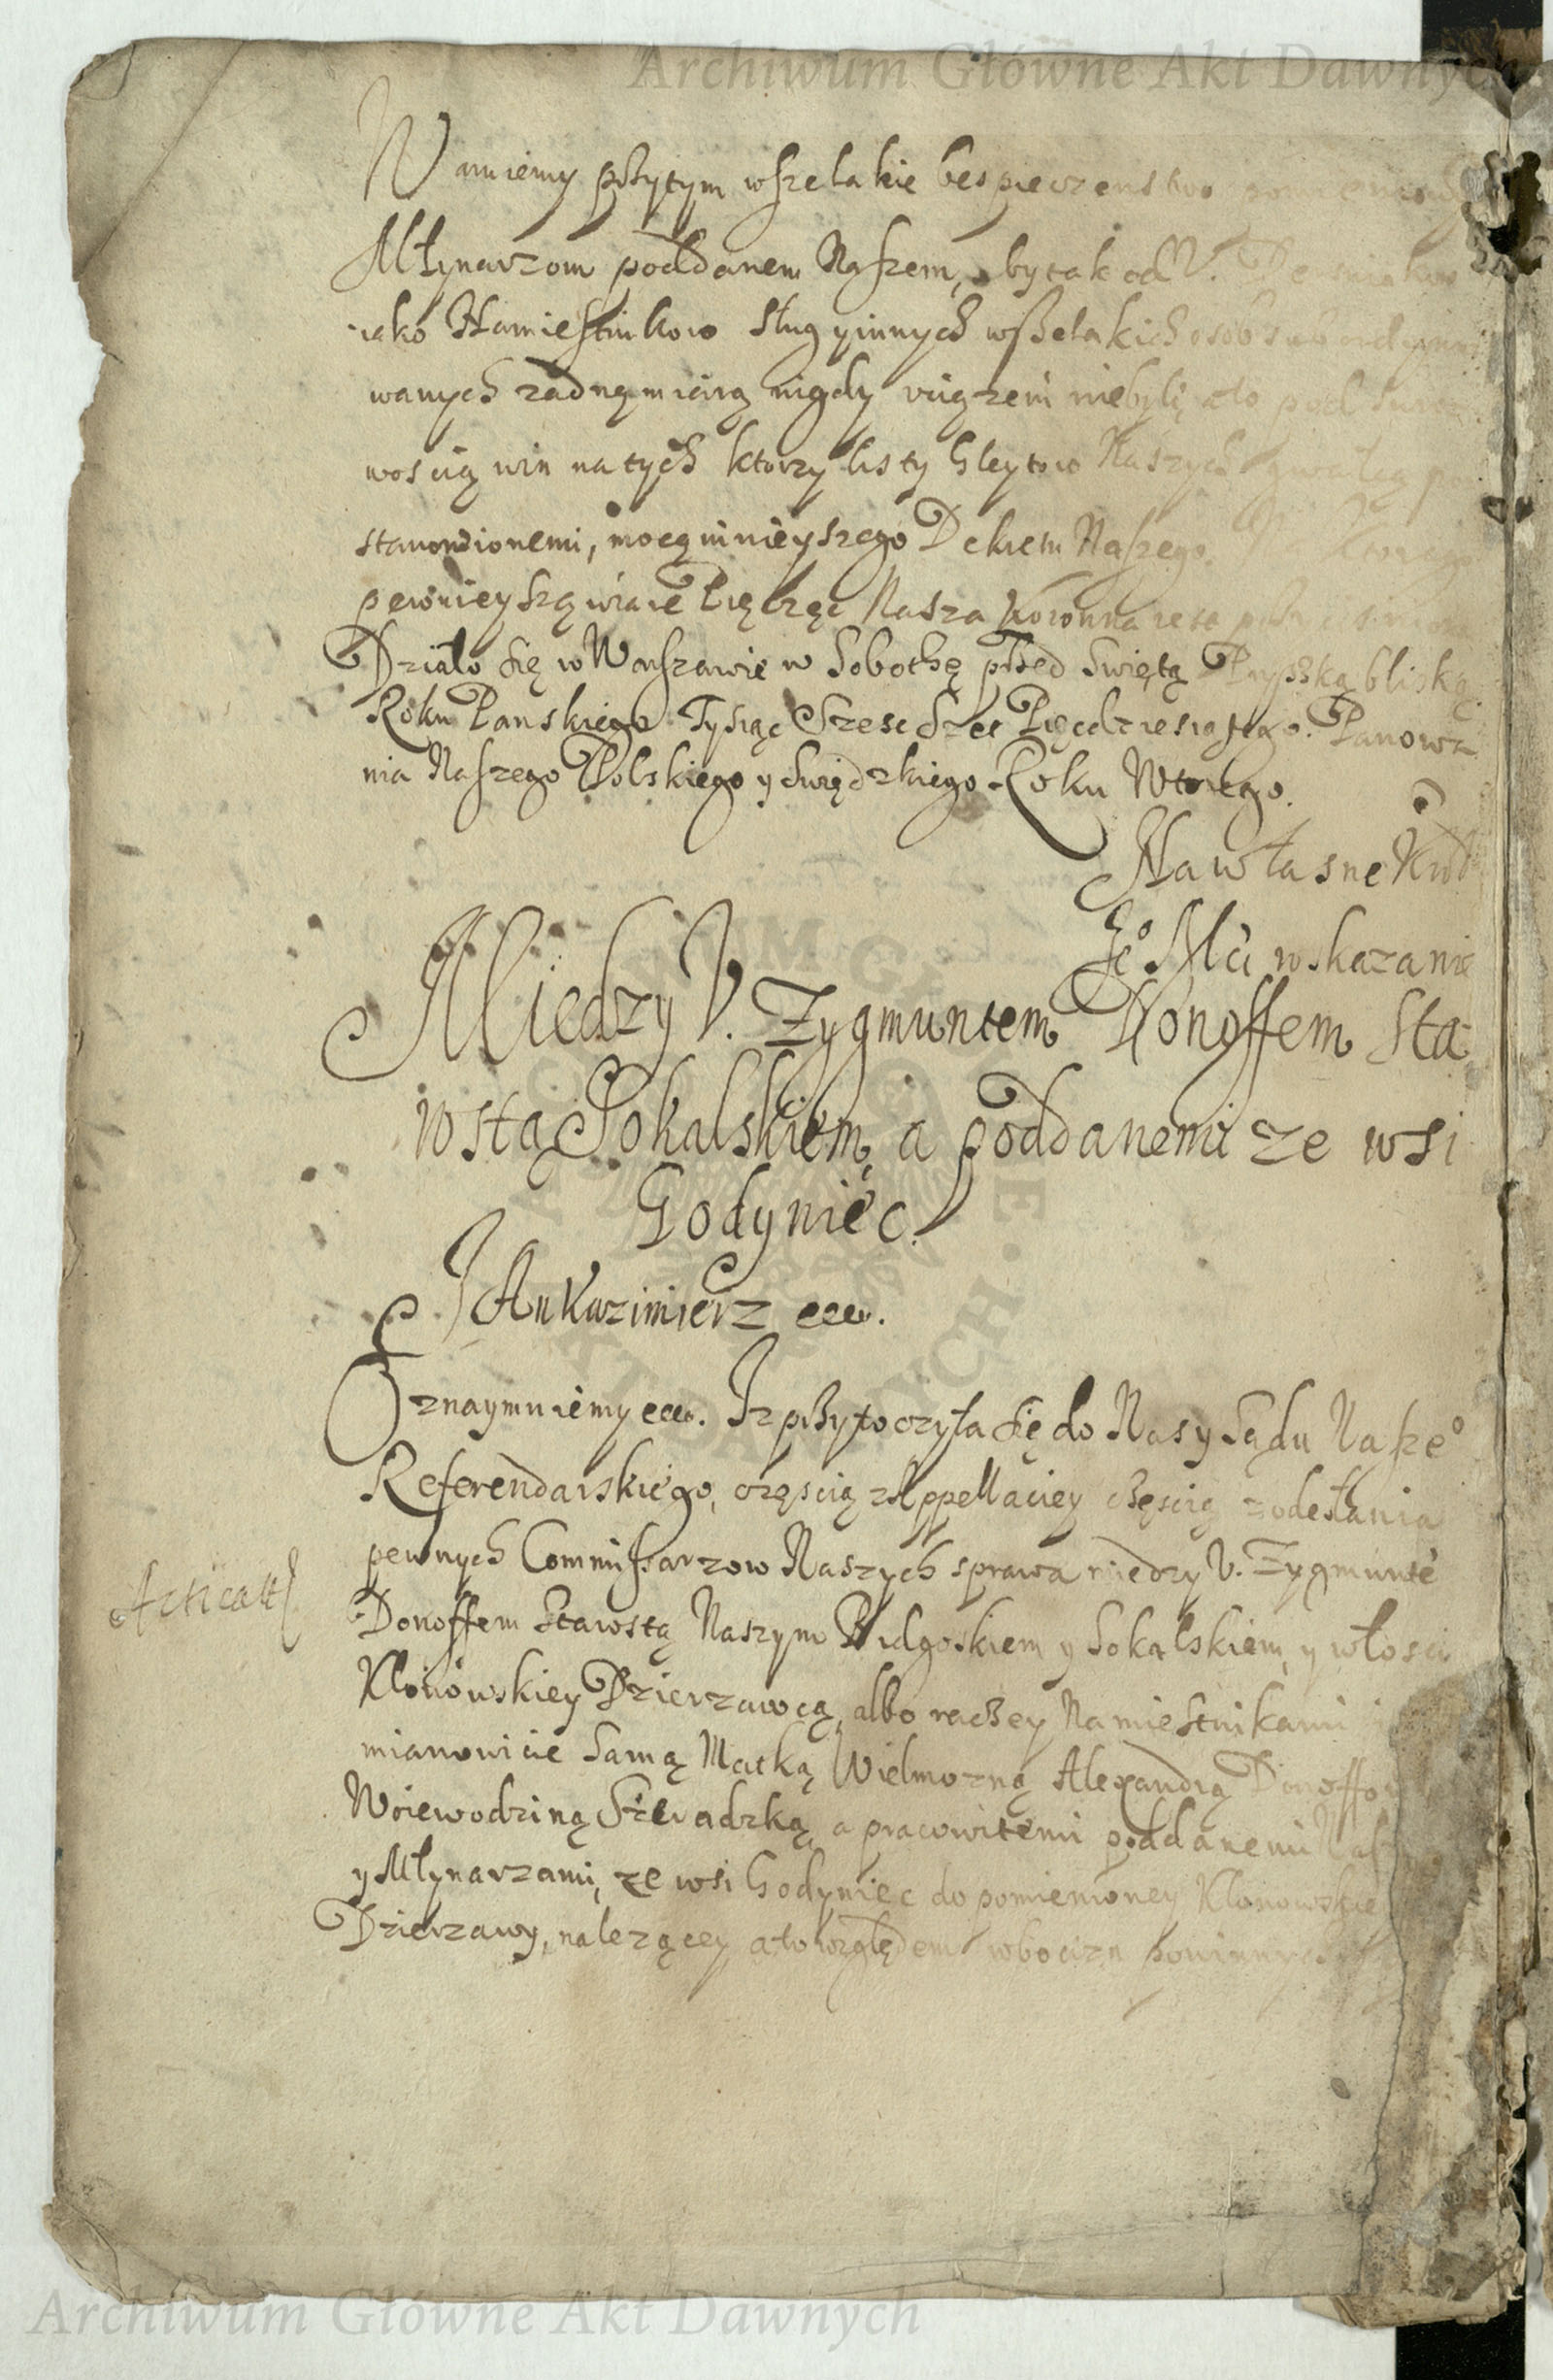 Archiwum Główne Akt Dawnych
Waruiemy przytym wszelakie bespieczenstwo
Młynarzom poddanem Naszem, aby tak od V.
iako Namiestnikow Sług y innych wszelakich osob subordyno
wanych zadną miarą nigdy vciązeni niebyli, a to pod suro
woscią win na tych ktorzy listy Gleytow Naszych gwałcą po
stanowionemi, mocą ninieyszego Dekretu Naszego.
pewnieyszą wiarę Pieczęć Nasza Koronna iest przycisniona
Działo się w Warszawie w Sobothę przed Swiętą Pryszką bliską
Roku Panskiego Tysiąc Szescset Pięcdziesiątego. Panowa
nia Naszego Polskiego y Swiędzkiego Roku Wtorego.
Na własne Krol
Jeo Mci wskazanie
Miedzy V. Zygmuntem Donoffem Sta
rostą Sokalskiem, a poddanemi ze wsi
Godyniec.
JAn Kazimierz etc.
Oznaymuiemy etc. Jz przytoczyła się do Nas y Sądu Naszeo
Referendarskiego, częscią z Appellaciey częscią z odesłania
pewnych Commissarzow Naszych sprawa miedzy V. Zygmunte
Acticat
Donoffem Starostą Naszym Bidgoskiem y Sokalskiem, y włosci
Klonowskiey Dzierzawcą, albo raczey Namiestnikami
mianowicie Samą Matką Wielmozną Alexandrą Donoffo
Woiewodziną Sieradzką, a pracowitemi poddanemi Nasz
y Młynarzami, ze wsi Godyniec do pomienioney Klonowskie
Dzierzawy, nalezącey, a to względem wbocizn powinnych
Archiwum Główne Akt Dawnych